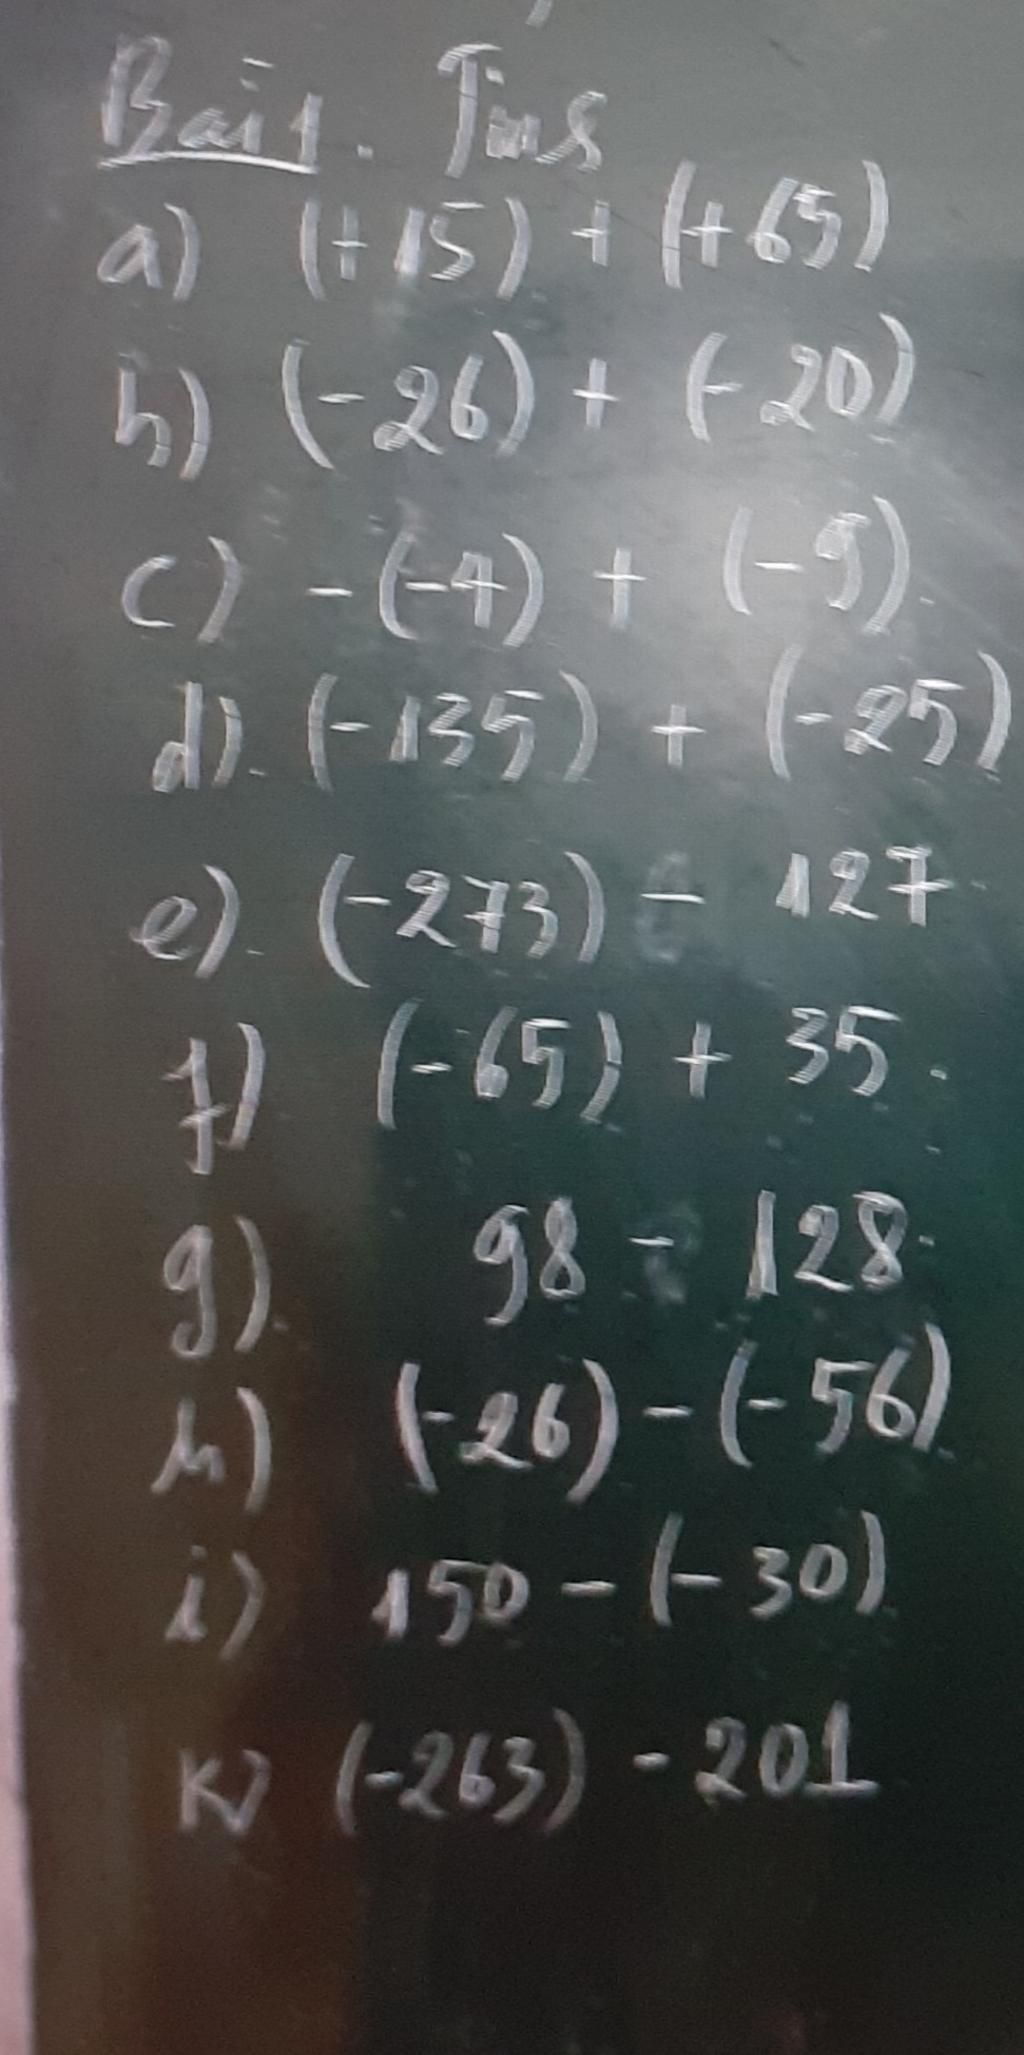 Bài 1. Tính
a) (+15) + (+65)
b) (-26) + (-20)
c) -(-4) + (-9).
d). (-135) + (-25)
e). (-273) - 127.
f) (-65) + 35.
g). 98 - 128.
h) (-26) - (-56).
i) 150 - (-30).
k) (-263) - 201